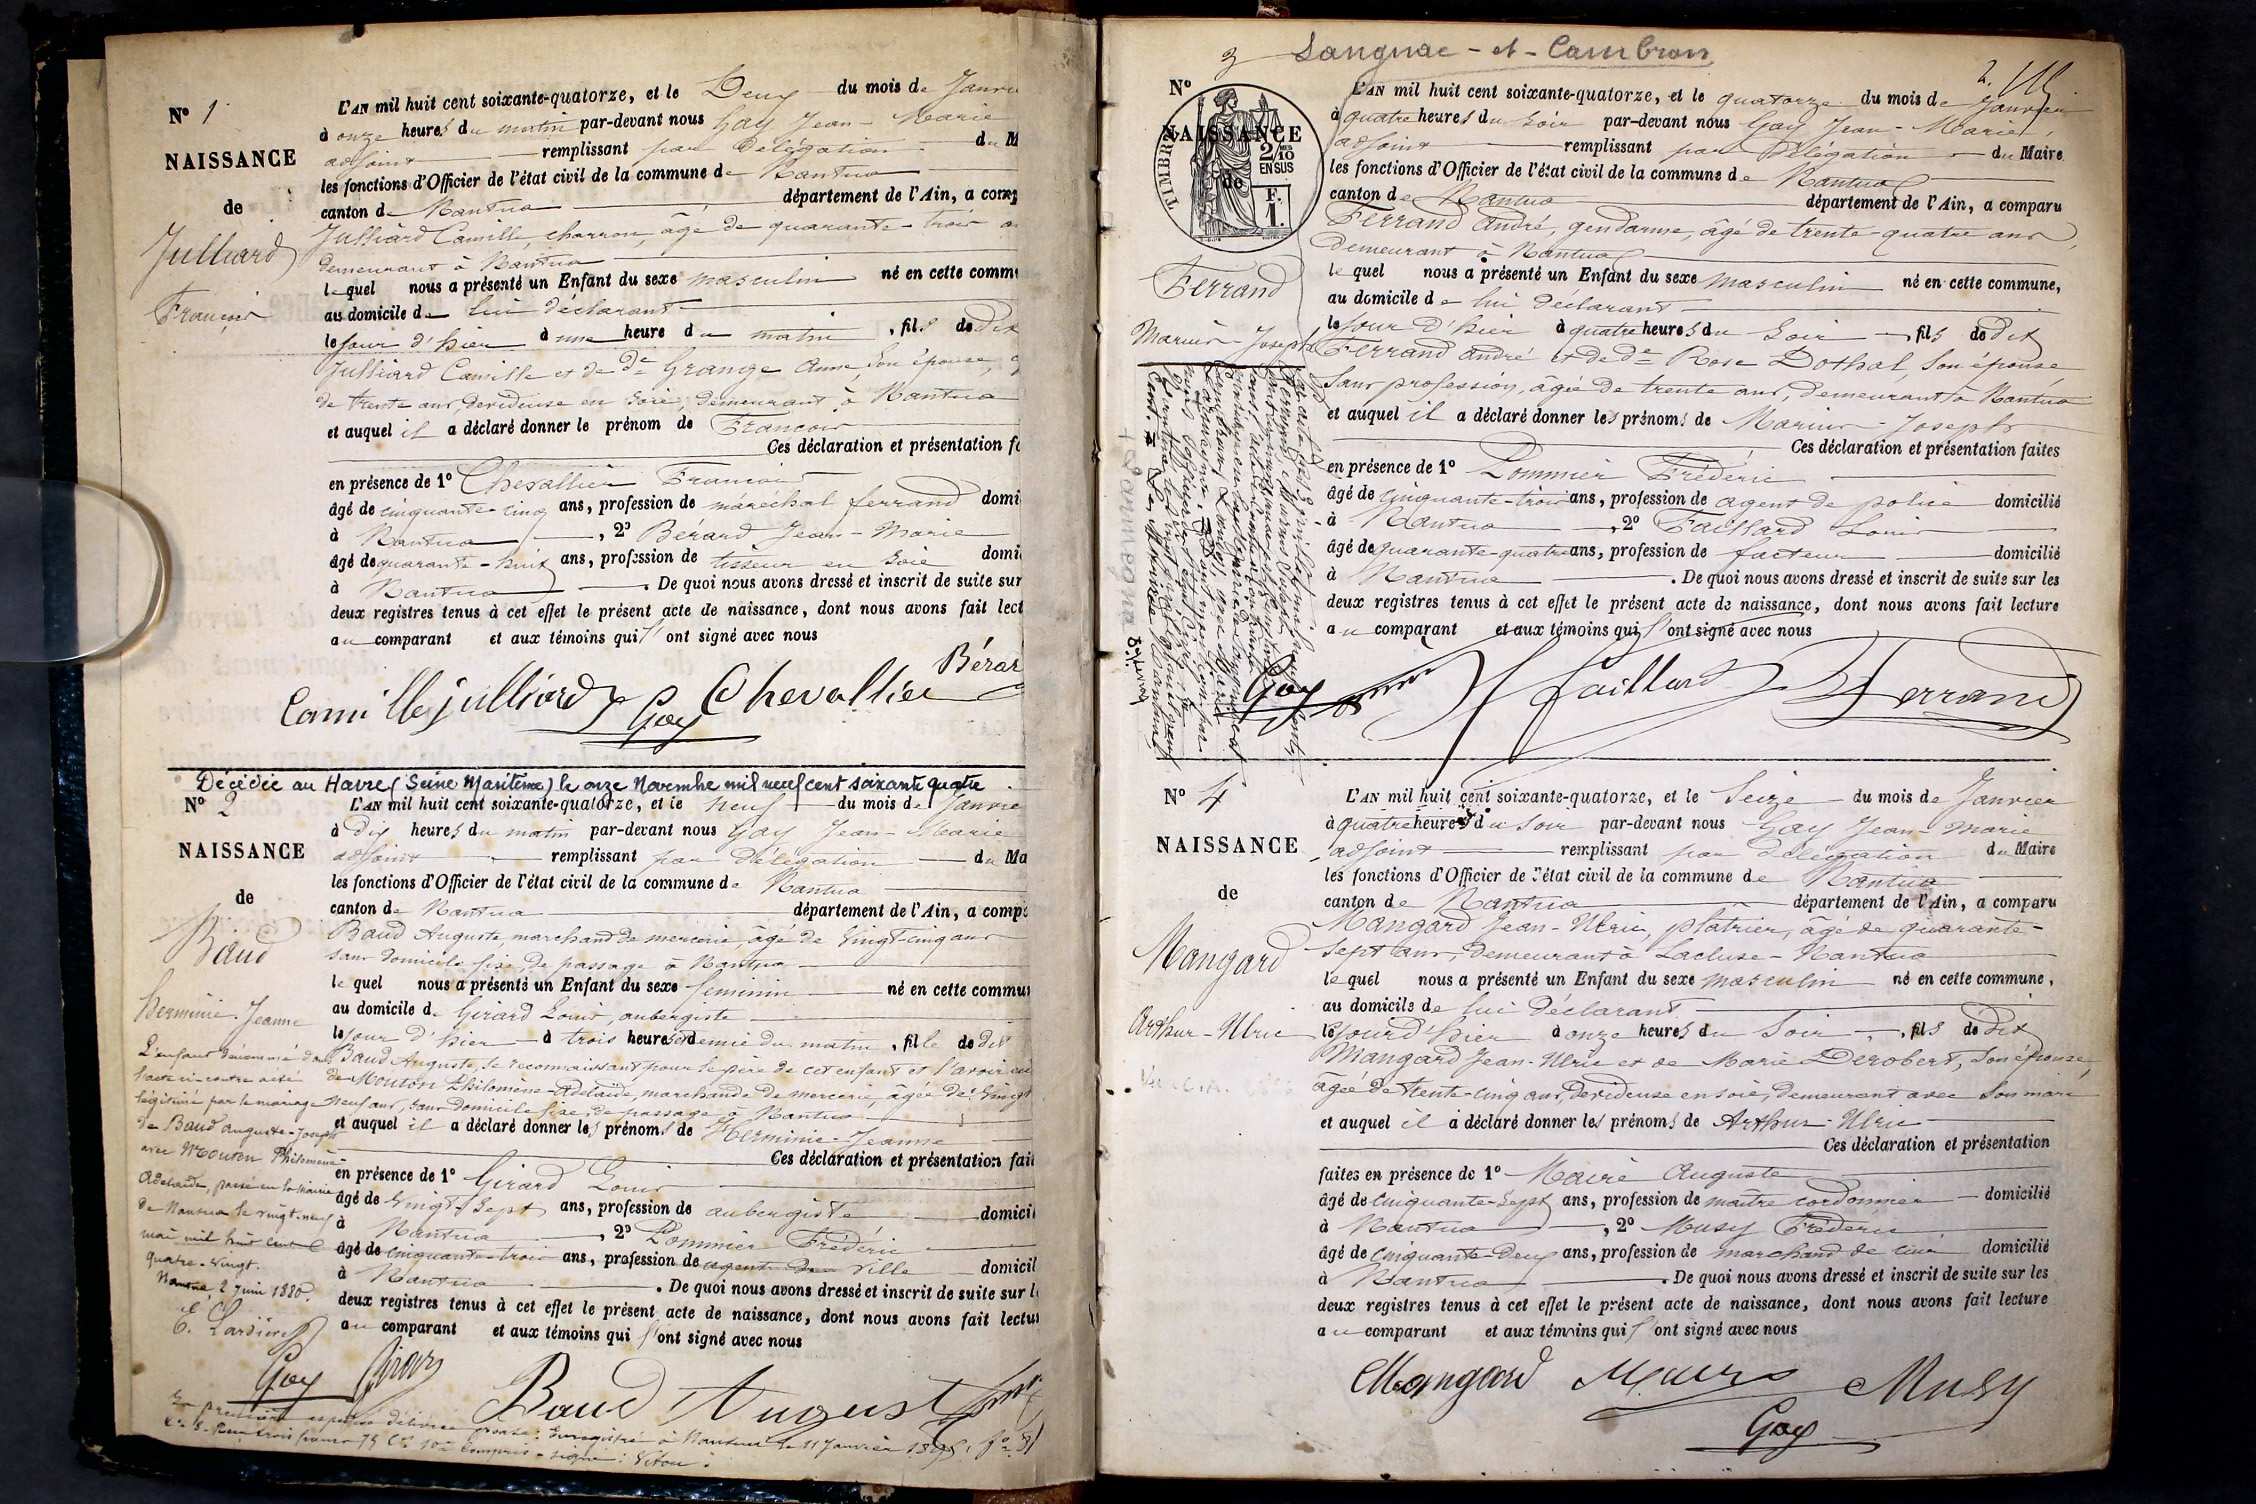 Nº 1
NAISSANCE
de
Julliard
François
L'AN mil huit cent soixante-quatorze, et le Deux du mois de Janvi
à onze heures du matin par-devant nous Gay Jean-Marie
adjoint remplissant par Délégation du M
les fonctions d'Officier de l'état civil de la commune de Nantua
canton de Nantua département de l'Ain, a comp
Julliard Camille, charron, âgé de quarante-trois an
demeurant à Nantua
lequel nous a présenté un Enfant du sexe masculin né en cette comm
au domicile de lui déclarant
le jour d'hier à une heure du matin, fils de Dit
Julliard Camille et de De Grange Anne, son épouse,
de trente ans, dévideuse en soie, demeurant à Nantua
et auquel il a déclaré donner le prénom de François
Ces déclaration et présentation f
en présence de 1º Chevallier François
âgé de cinquante-cinq ans, profession de maréchal ferrand domi
à Nantua, 2º Bérard Jean-Marie
âgé de quarante-huit ans, profession de tisseur en soie domi
à Nantua. De quoi nous avons dressé et inscrit de suite sur
deux registres tenus à cet effet le présent acte de naissance, dont nous avons fait lect
au comparant et aux témoins qui l'ont signé avec nous
Bérar
Camille julliard Gay Chevallier
Décédée au Havre (Seine Maritime) le onze Novembre mil neuf cent soixante quatre
Nº 2
NAISSANCE
de
Baud
Herminie-Jeanne
L'enfant dénommé dans
l'acte ci-contre a été
légitimé par le mariage
de Baud Auguste-Joseph
avec Mouton Philomène
Adélaïde, passé en la Mairie
de Nantua le vingt-neuf
mai mil huit cent
quatre-vingt.
Nantua 2 Juin 1880.
L'AN mil huit cent soixante-quatorze, et le neuf du mois de Janvie
à Dix heures du matin par-devant nous Gay Jean-Marie
adjoint remplissant par Délégation du Ma
les fonctions d'Officier de l'état civil de la commune de Nantua
canton de Nantua département de l'Ain, a comp
Baud Auguste, marchand de mercerie, âgé de vingt-cinq ans
sans domicile fixe, de passage à Nantua
lequel nous a présenté un Enfant du sexe féminin né en cette commu
au domicile de Girard Louis, aubergiste
le jour d'hier à trois heures et demie du matin, fille de Dit
Baud Auguste, se reconnaissant pour le père de cet enfant et l'avoir eu
de Mouton Philomène-Adélaïde, marchande de mercerie, âgée de vingt
neuf ans, sans domicile fixe, de passage à Nantua
et auquel il a déclaré donner les prénoms de Herminie-Jeanne
Ces déclaration et présentation fai
en présence de 1º Girard Louis
âgé de vingt-sept ans, profession de aubergiste domicil
à Nantua, 2º Pommier Frédéric
âgé de cinquante-trois ans, profession de agent de ville domicil
à Nantua. De quoi nous avons dressé et inscrit de suite sur l
deux registres tenus à cet effet le présent acte de naissance, dont nous avons fait lectu
au comparant et aux témoins qui l'ont signé avec nous
Gay Girard Baud August
Sangnac-et-Cambron
3
Nº
NAISSANCE
de
TIMBRE
2/10
EN SUS
F.
1.
Ferrand
Marius-Joseph
L'AN mil huit cent soixante-quatorze, et le quatorze du mois de Janvier
à quatre heures du soir par-devant nous Gay Jean-Marie,
adjoint remplissant par Délégation du Maire
les fonctions d'Officier de l'état civil de la commune de Nantua
canton de Nantua département de l'Ain, a comparu
Ferrand André, gendarme, âgé de trente-quatre ans,
demeurant à Nantua
lequel nous a présenté un Enfant du sexe masculin né en cette commune,
au domicile de lui déclarant
le jour d'hier à quatre heures du soir, fils de Dit
Ferrand André et de De Rose Dothal, son épouse,
sans profession, âgée de trente ans, demeurant à Nantua
et auquel il a déclaré donner les prénoms de Marius-Joseph
Ces déclaration et présentation faites
en présence de 1º Pommier Frédéric
âgé de cinquante-trois ans, profession de agent de police domicilié
à Nantua, 2º Faillard Louis
âgé de quarante-quatre ans, profession de facteur domicilié
à Nantua. De quoi nous avons dressé et inscrit de suite sur les
deux registres tenus à cet effet le présent acte de naissance, dont nous avons fait lecture
au comparant et aux témoins qui l'ont signé avec nous
Gay faillard Ferrand
Nº 4
NAISSANCE
de
Mangard
Arthur-Ulric
L'AN mil huit cent soixante-quatorze, et le Seize du mois de Janvier
à quatre heures du soir par-devant nous Gay Jean-Marie
adjoint remplissant par délégation du Maire
les fonctions d'Officier de l'état civil de la commune de Nantua
canton de Nantua département de l'Ain, a comparu
Mangard Jean-Ulric, plâtrier, âgé de quarante-
sept ans, demeurant à Lacluse-Nantua
lequel nous a présenté un Enfant du sexe masculin né en cette commune,
au domicile de lui déclarant
le jour d'hier à onze heures du soir, fils de Dit
Mangard Jean-Ulric et de Marie Derobert, son épouse,
âgée de trente-cinq ans, dévideuse en soie, demeurant avec son mari
et auquel il a déclaré donner les prénoms de Arthur-Ulric
Ces déclaration et présentation
faites en présence de 1º Maire Auguste
âgé de cinquante-sept ans, profession de maître cordonnier domicilié
à Nantua, 2º Musy Frédéric
âgé de cinquante-deux ans, profession de marchand de domicilié
à Nantua. De quoi nous avons dressé et inscrit de suite sur les
deux registres tenus à cet effet le présent acte de naissance, dont nous avons fait lecture
au comparant et aux témoins qui l'ont signé avec nous
Mangard Musy
Gay